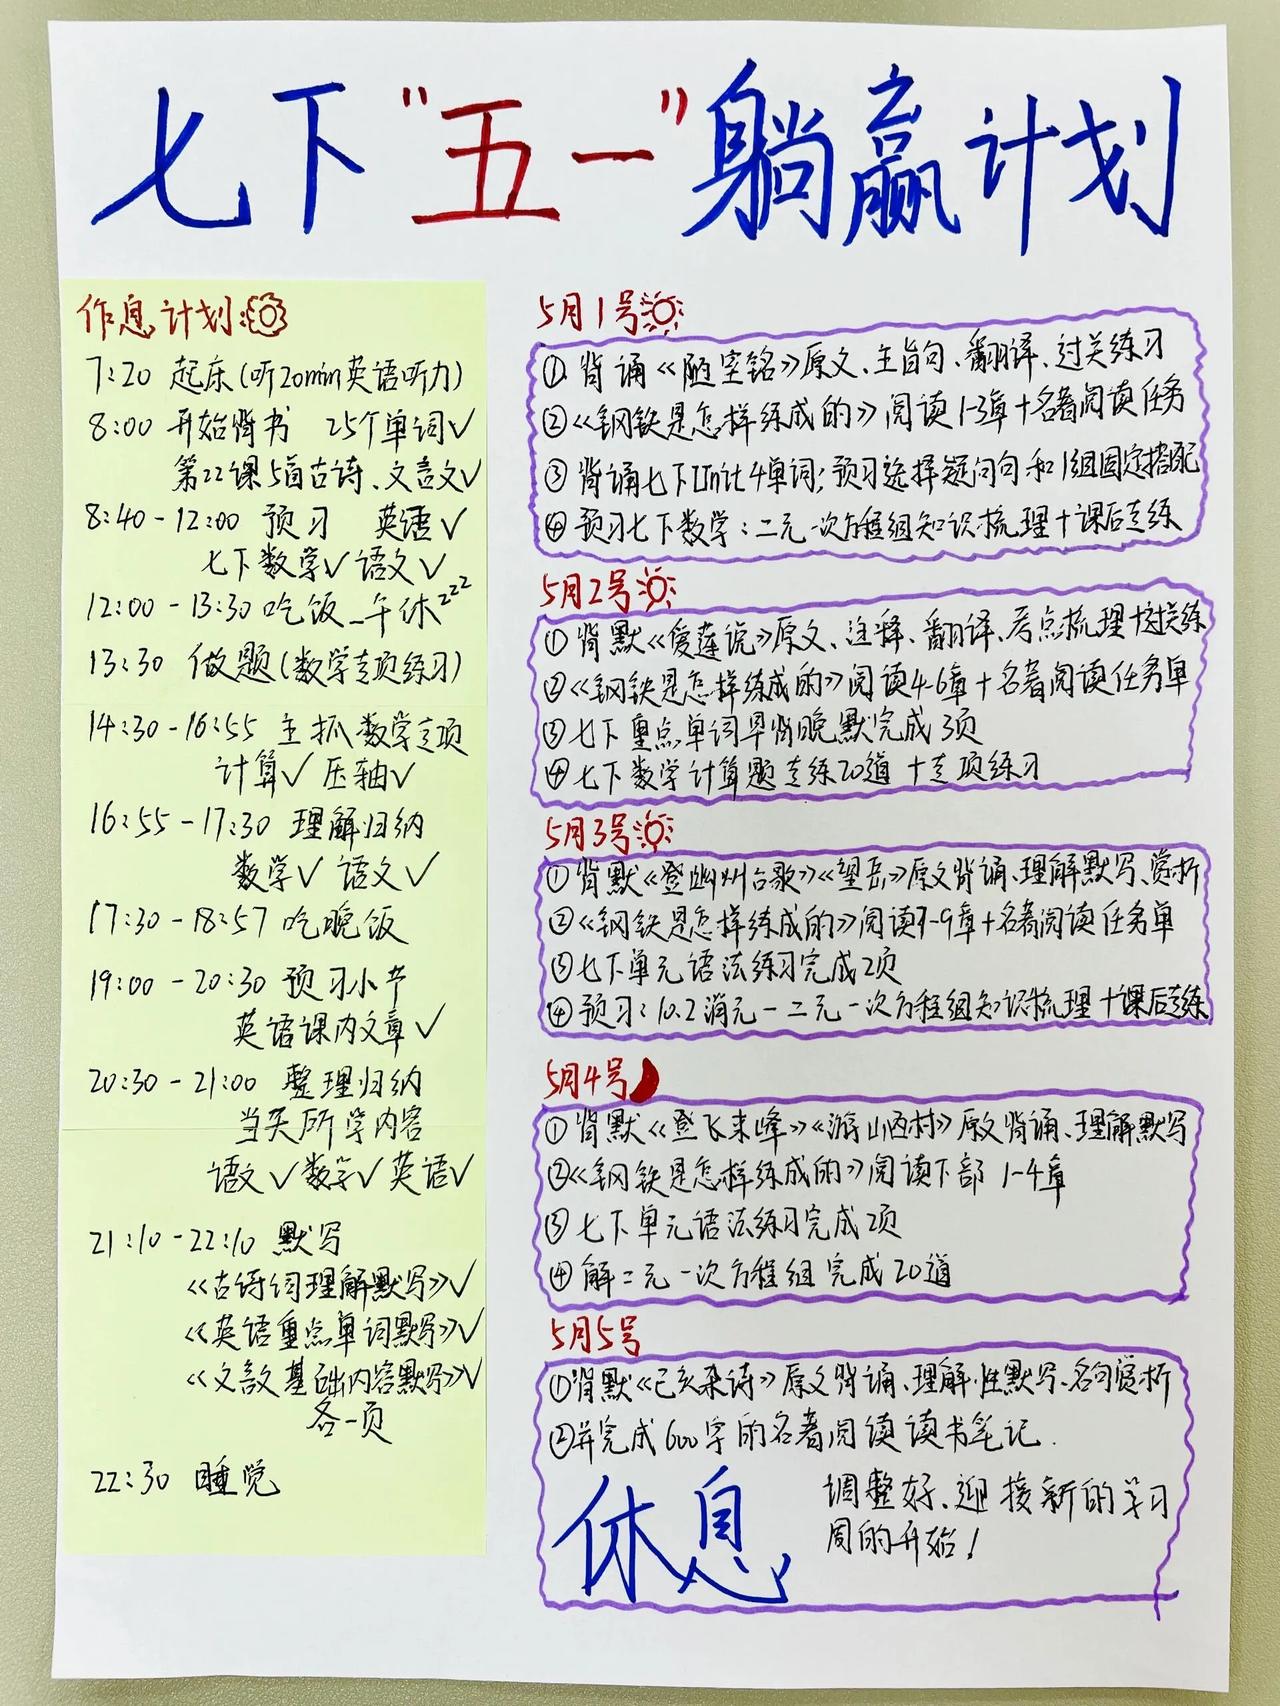 七下"五一"躺赢计划
作息计划:
7:20 起床(听20min英语听力)
8:00 开始背书 25个单词✓
第22课5首古诗、文言文✓
8:40-12:00 预习 英语✓
七下数学✓语文✓
12:00-13:30吃饭_午休zzz
13:30 做题(数学专项练习)
14:30-16:55 主抓数学专项
计算✓压轴✓
16:55-17:30 理解归纳
数学✓语文✓
17:30-18:57吃晚饭
19:00-20:30 预习小节
英语课内文章✓
20:30-21:00 整理归纳
当天所学内容
语文✓数学✓英语✓
21:10-22:10 默写
《古诗词理解默写》✓
《英语重点单词默写》✓
《文言文基础内容默写》✓
各一页
22:30 睡觉
5月1号
①背诵《陋室铭》原文、主旨句、翻译、过关练习
②《钢铁是怎样练成的》阅读1-3章+名著阅读任务
③背诵七下Unit4单词;预习选择疑问句和1组固定搭配
④预习七下数学:二元一次方程组知识梳理+课后专练
5月2号
①背默《爱莲说》原文、注释、翻译、考点梳理+过关练
②《钢铁是怎样练成的》阅读4-6章+名著阅读任务单
③七下重点单词早背晚默完成3页
④七下数学计算题专练20道+专项练习
5月3号
①背默《登幽州台歌》《望岳》原文背诵、理解默写、赏析
②《钢铁是怎样练成的》阅读7-9章+名著阅读任务单
③七下单元语法练习完成2页
④预习:10.2消元-二元一次方程组知识梳理+课后专练
5月4号
①背默《登飞来峰》《游山西村》原文背诵、理解默写
②《钢铁是怎样练成的》阅读下部1-4章
③七下单元语法练习完成2页
④解二元一次方程组完成20道
5月5号
①背默《己亥杂诗》原文背诵、理解性默写、名句赏析
②并完成600字的名著阅读读书笔记.
休息
调整好、迎接新的学习
周的开始!